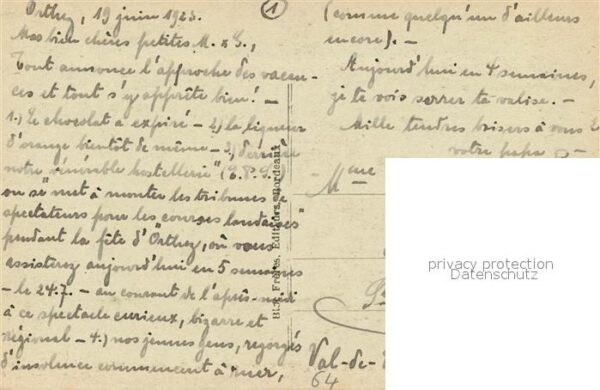 Orthez, 19 juin 1923.
1
Mes bien chères petites M. & S.,
Tout annonce l'approche des vacan-
ces et tout s'y apprête bien! —
1.) Le chocolat a expiré — 2.) la liqueur
d'orange bientôt de même — 3.) derrière
notre vénérable hostellerie" (E.P.S.
on se "met à monter les tribunes de
spectateurs pour les courses landaises"
pendant la fête d'Orthez, où vous
assisterez aujourd'hui en 5 semaines
— le 24.7. — au courant de l'après-midi
à ce spectacle curieux, bizarre et
régional — 4.) nos jeunes gens, regorgés
d'insolence commencent à ruer,
(comme quelqu'un d'ailleurs
encore). —
Aujourd'hui en 4 semaines,
je te vois serrer ta valise. —
Mille tendres baisers à vous 2
votre papa
Mme
Bloc Frères, Editeurs, Bordeaux
privacy protection
Datenschutz
Val-de-
64